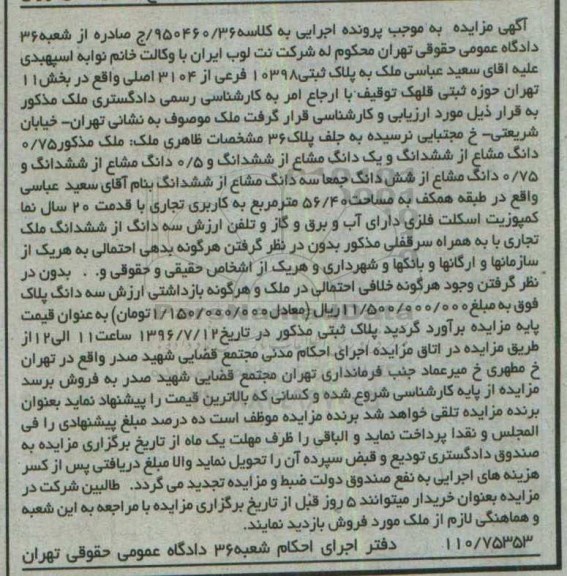 آگهی مزایده به موجب پرونده اجرایی به کلاسه۹۵۰۴۶۰/۳۶/ج صادره از شعبه۳۶
دادگاه عمومی حقوقی تهران محکوم له شرکت نت لوب ایران با وکالت خانم نوابه اسپهبدی
علیه اقای سعید عباسی ملک به پلاک ثبتی۱۰۳۹۸ فرعی از ۳۱۰۴ اصلی واقع در بخش۱۱
تهران حوزه ثبتی قلهک توقیف با ارجاع امر به کارشناسی رسمی دادگستری ملک مذکور
به قرار ذیل مورد ارزیابی و کارشناسی قرار گرفت ملک موصوف به نشانی تهران- خیابان
شریعتی- خ مجتبایی نرسیده به جلف پلاک۳۶ مشخصات ظاهری ملک: ملک مذکور۰/۷۵
دانگ مشاع از ششدانگ و یک دانگ مشاع از ششدانگ و ۰/۵ دانگ مشاع از ششدانگ و
۰/۷۵ دانگ مشاع از شش دانگ جمعا سه دانگ مشاع از ششدانگ بنام آقای سعید عباسی
واقع در طبقه همکف به مساحت۵۶/۴۰ مترمربع به کاربری تجاری با قدمت ۲۰ سال نما
کمپوزیت اسکلت فلزی دارای آب و برق و گاز و تلفن ارزش سه دانگ از ششدانگ ملک
تجاری با به همراه سرقفلی مذکور بدون در نظر گرفتن هرگونه بدهی احتمالی به هریک از
سازمانها و ارگانها و بانکها و شهرداری و هریک از اشخاص حقیقی و حقوقی و. . بدون در
نظر گرفتن وجود هرگونه خلافی احتمالی در ملک و هرگونه بازداشتی ارزش سه دانگ پلاک
فوق به مبلغ۱۱/۵۰۰/۰۰۰/۰۰۰ریال (معادل۱/۱۵۰/۰۰۰/۰۰۰تومان) به عنوان قیمت
پایه مزایده برآورد گردید پلاک ثبتی مذکور در تاریخ۱۳۹۶/۷/۱۲ ساعت۱۱ الی۱۲از
طریق مزایده در اتاق مزایده اجرای احکام مدنی مجتمع قضایی شهید صدر واقع در تهران
خ مطهری خ میرعماد جنب فرمانداری تهران مجتمع قضایی شهید صدر به فروش برسد
مزایده از پایه کارشناسی شروع شده و کسانی که بالاترین قیمت را پیشنهاد نماید بعنوان
برنده مزایده تلقی خواهد شد برنده مزایده موظف است ده درصد مبلغ پیشنهادی را فی
المجلس و نقدا پرداخت نماید و الباقی را ظرف مهلت یک ماه از تاریخ برگزاری مزایده به
صندوق دادگستری تودیع و قبض سپرده آن را تحویل نماید والا مبلغ دریافتی پس از کسر
هزینه های اجرایی به نفع صندوق دولت ضبط و مزایده تجدید می گردد. طالبین شرکت در
مزایده بعنوان خریدار میتوانند ۵ روز قبل از تاریخ برگزاری مزایده با مراجعه به این شعبه
و هماهنگی لازم از ملک مورد فروش بازدید نمایند.
۱۱۰/۷۵۳۵۳ دفتر اجرای احکام شعبه۳۶ دادگاه عمومی حقوقی تهران